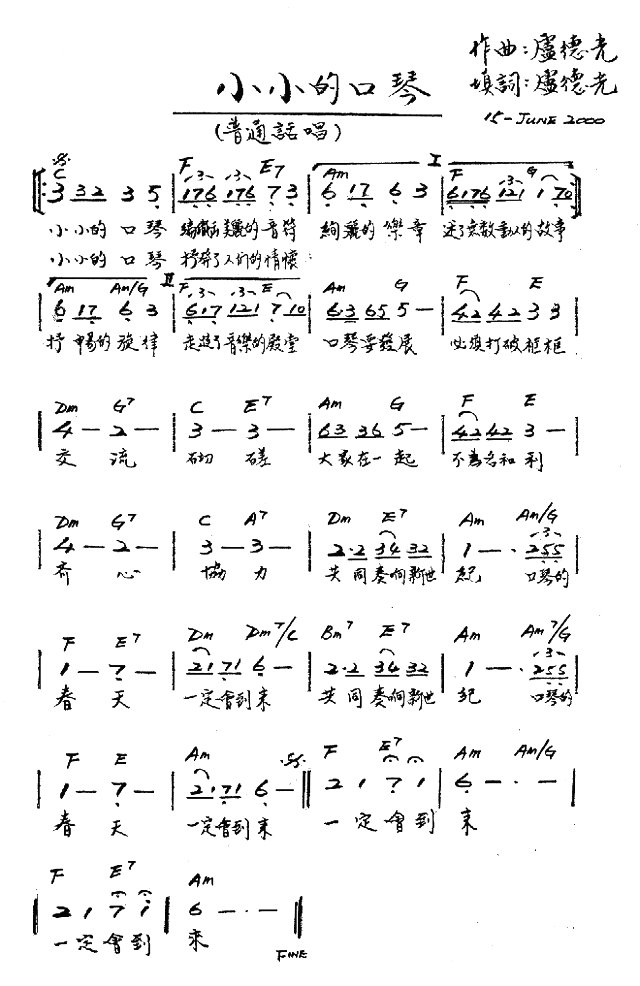 作曲:盧德光
小小的口琴
填詞:盧德光
(普通話唱)
15-JUNE 2000
I
C F E7 Am F G
3 32 3 5 | 176 176 7 3 | 6 17 6 3 | 6176 121 1 70
小小的 口琴 美麗的音符 絢麗的樂章 動人的故事
小小的 口琴 人們的情懷
II
Am Am/G F E Am G F E
6 17 6 3 | 617 121 7 10 | 63 65 5 - | 42 42 3 3
抒暢的旋律 走進了音樂的殿堂 口琴要發展 必須打破框框
Dm G7 C E7 Am G F E
4 - 2 - | 3 - 3 - | 63 36 5 - | 42 42 3 -
交流 切磋 大家在一起 不為名和利
Dm G7 C A7 Dm E7 Am Am/G
4 - 2 - | 3 - 3 - | 2·2 34 32 | 1 - · 255
齊心 協力 共同奏响新世紀 口琴的
F E7 Dm Dm7/C Bm7 E7 Am Am7/G
1 - 7 - | 21 71 6 - | 2·2 34 32 | 1 - · 255
春天 一定會到來 共同奏响新世紀 口琴的
F E Am F E7 Am Am/G
1 - 7 - | 21 71 6 - || 2 1 7 1 | 6 - · -
春天 一定會到來 一定會到來
F E7 Am
2 1 7 1 | 6 - · -
一定會到來
FINE